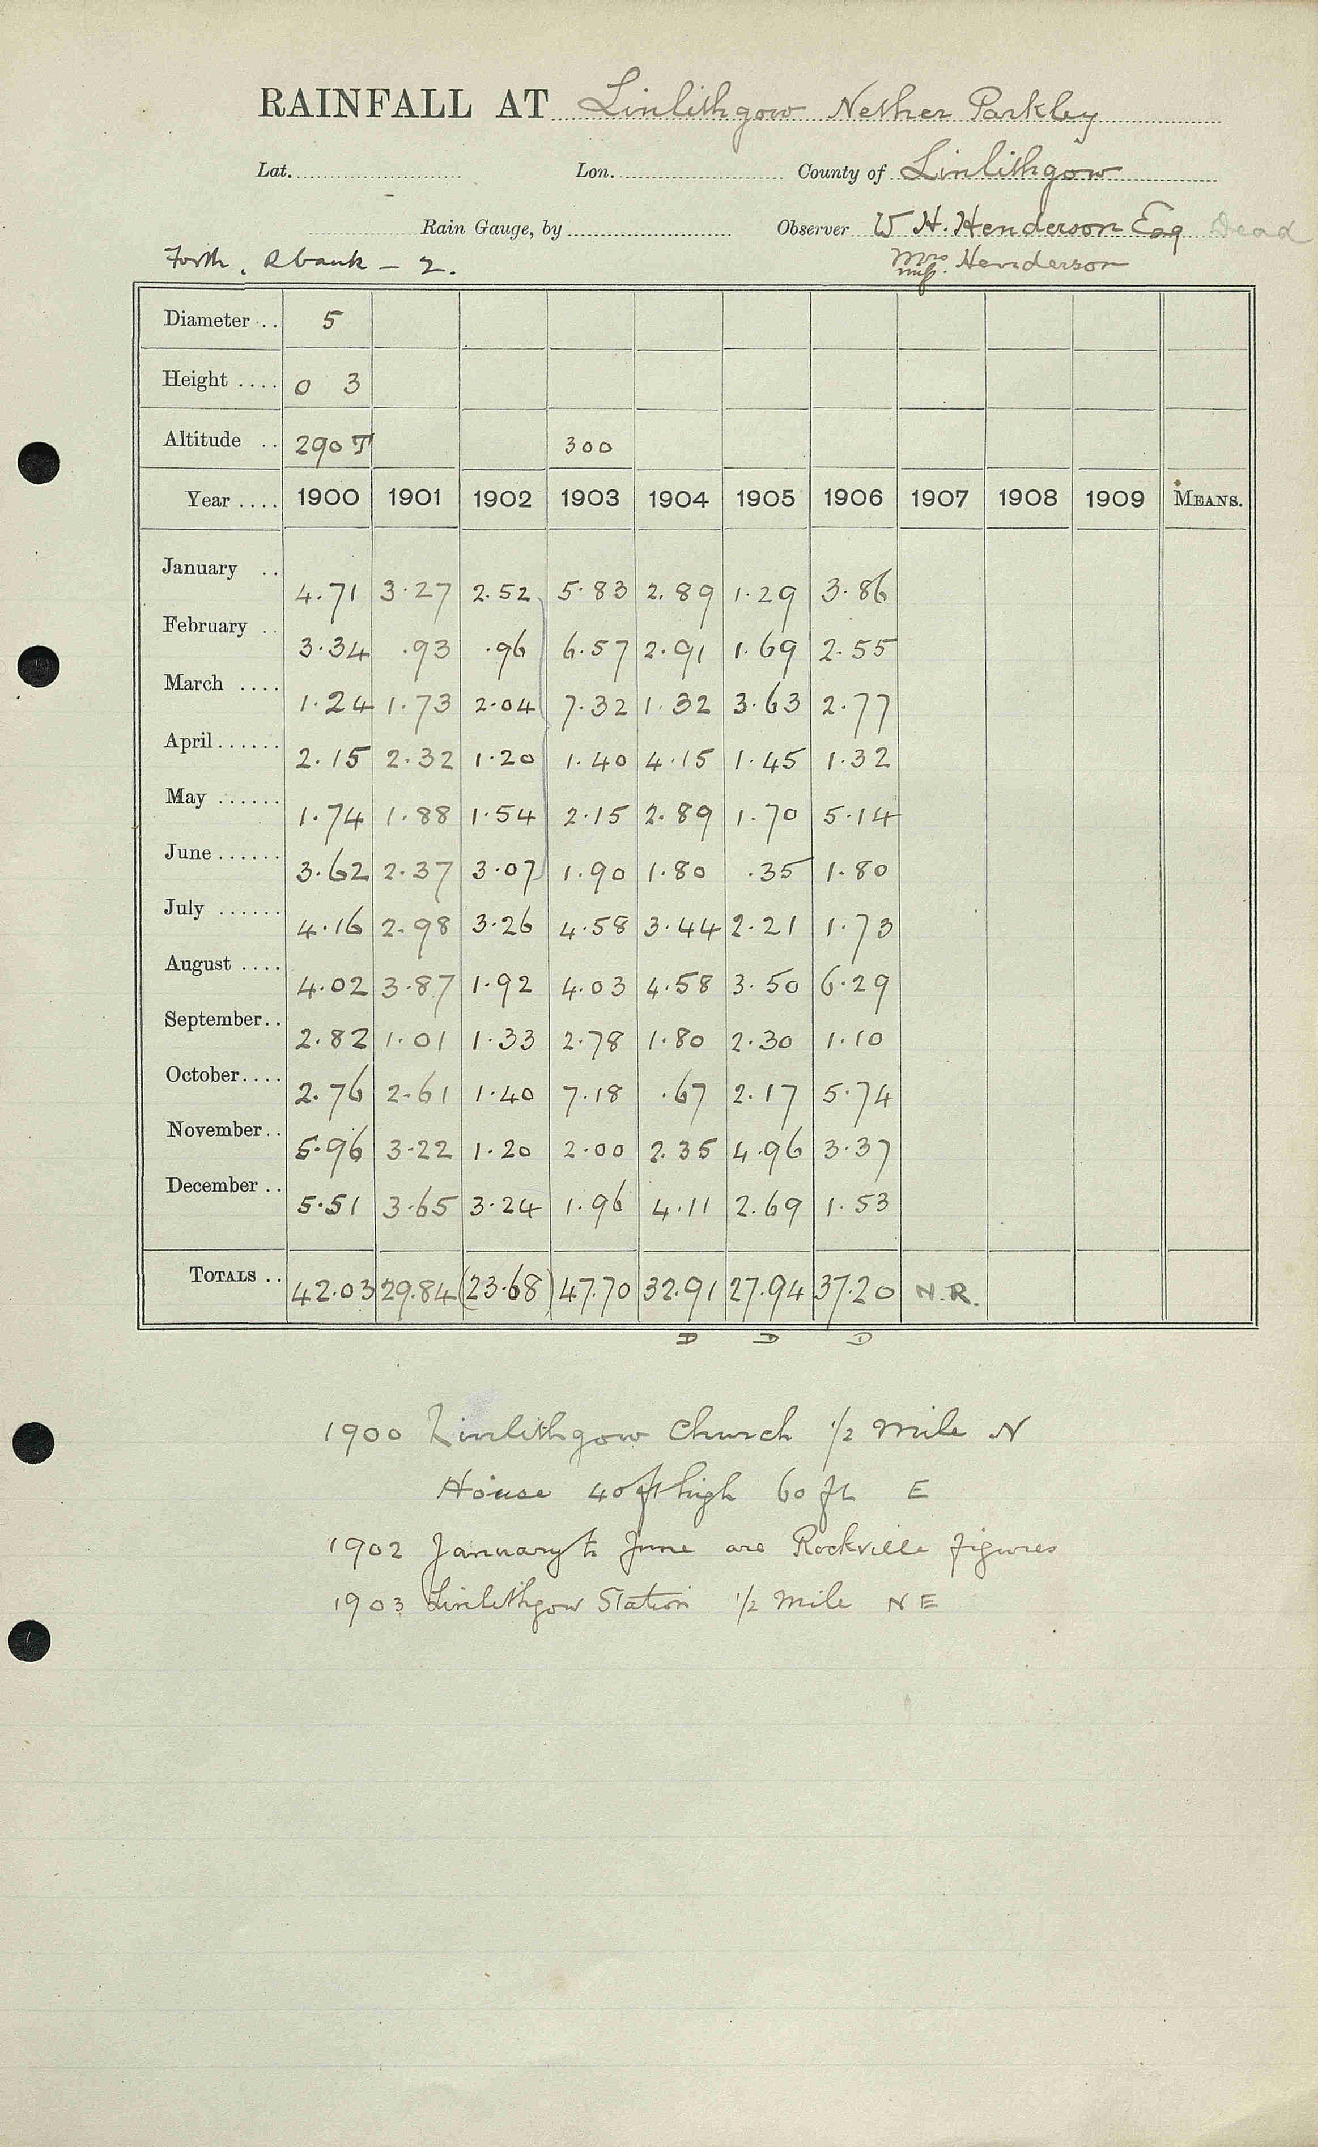 RAINFALL AT Linlithgow Nether Parkley
Lat. Lon. County of Linlithgow
Rain Gauge, by Observer W H. Henderson Esq Dead
Forth, R bank - 2. Mrs Henderson
Diameter .. 5
Height .... 0 3
Altitude .. 290 T 300
Year .... 1900 1901 1902 1903 1904 1905 1906 1907 1908 1909 MEANS.
January .. 4.71 3.27 2.52 5.83 2.89 1.29 3.86
February .. 3.34 .93 .96 6.57 2.91 1.69 2.55
March .... 1.24 1.73 2.04 7.32 1.32 3.63 2.77
April...... 2.15 2.32 1.20 1.40 4.15 1.45 1.32
May ...... 1.74 1.88 1.54 2.15 2.89 1.70 5.14
June...... 3.62 2.37 3.07 1.90 1.80 .35 1.80
July ...... 4.16 2.98 3.26 4.58 3.44 2.21 1.73
August .... 4.02 3.87 1.92 4.03 4.58 3.50 6.29
September.. 2.82 1.01 1.33 2.78 1.80 2.30 1.10
October.... 2.76 2.61 1.40 7.18 .67 2.17 5.74
November.. 5.96 3.22 1.20 2.00 2.35 4.96 3.37
December .. 5.51 3.65 3.24 1.96 4.11 2.69 1.53
TOTALS .. 42.03 29.84 (23.68) 47.70 32.91 27.94 37.20 N.R.
D D D
1900 Linlithgow Church 1/2 mile N
House 40 ft high 60 ft E
1902 January to June are Rockville figures
1903 Linlithgow Station 1/2 mile NE